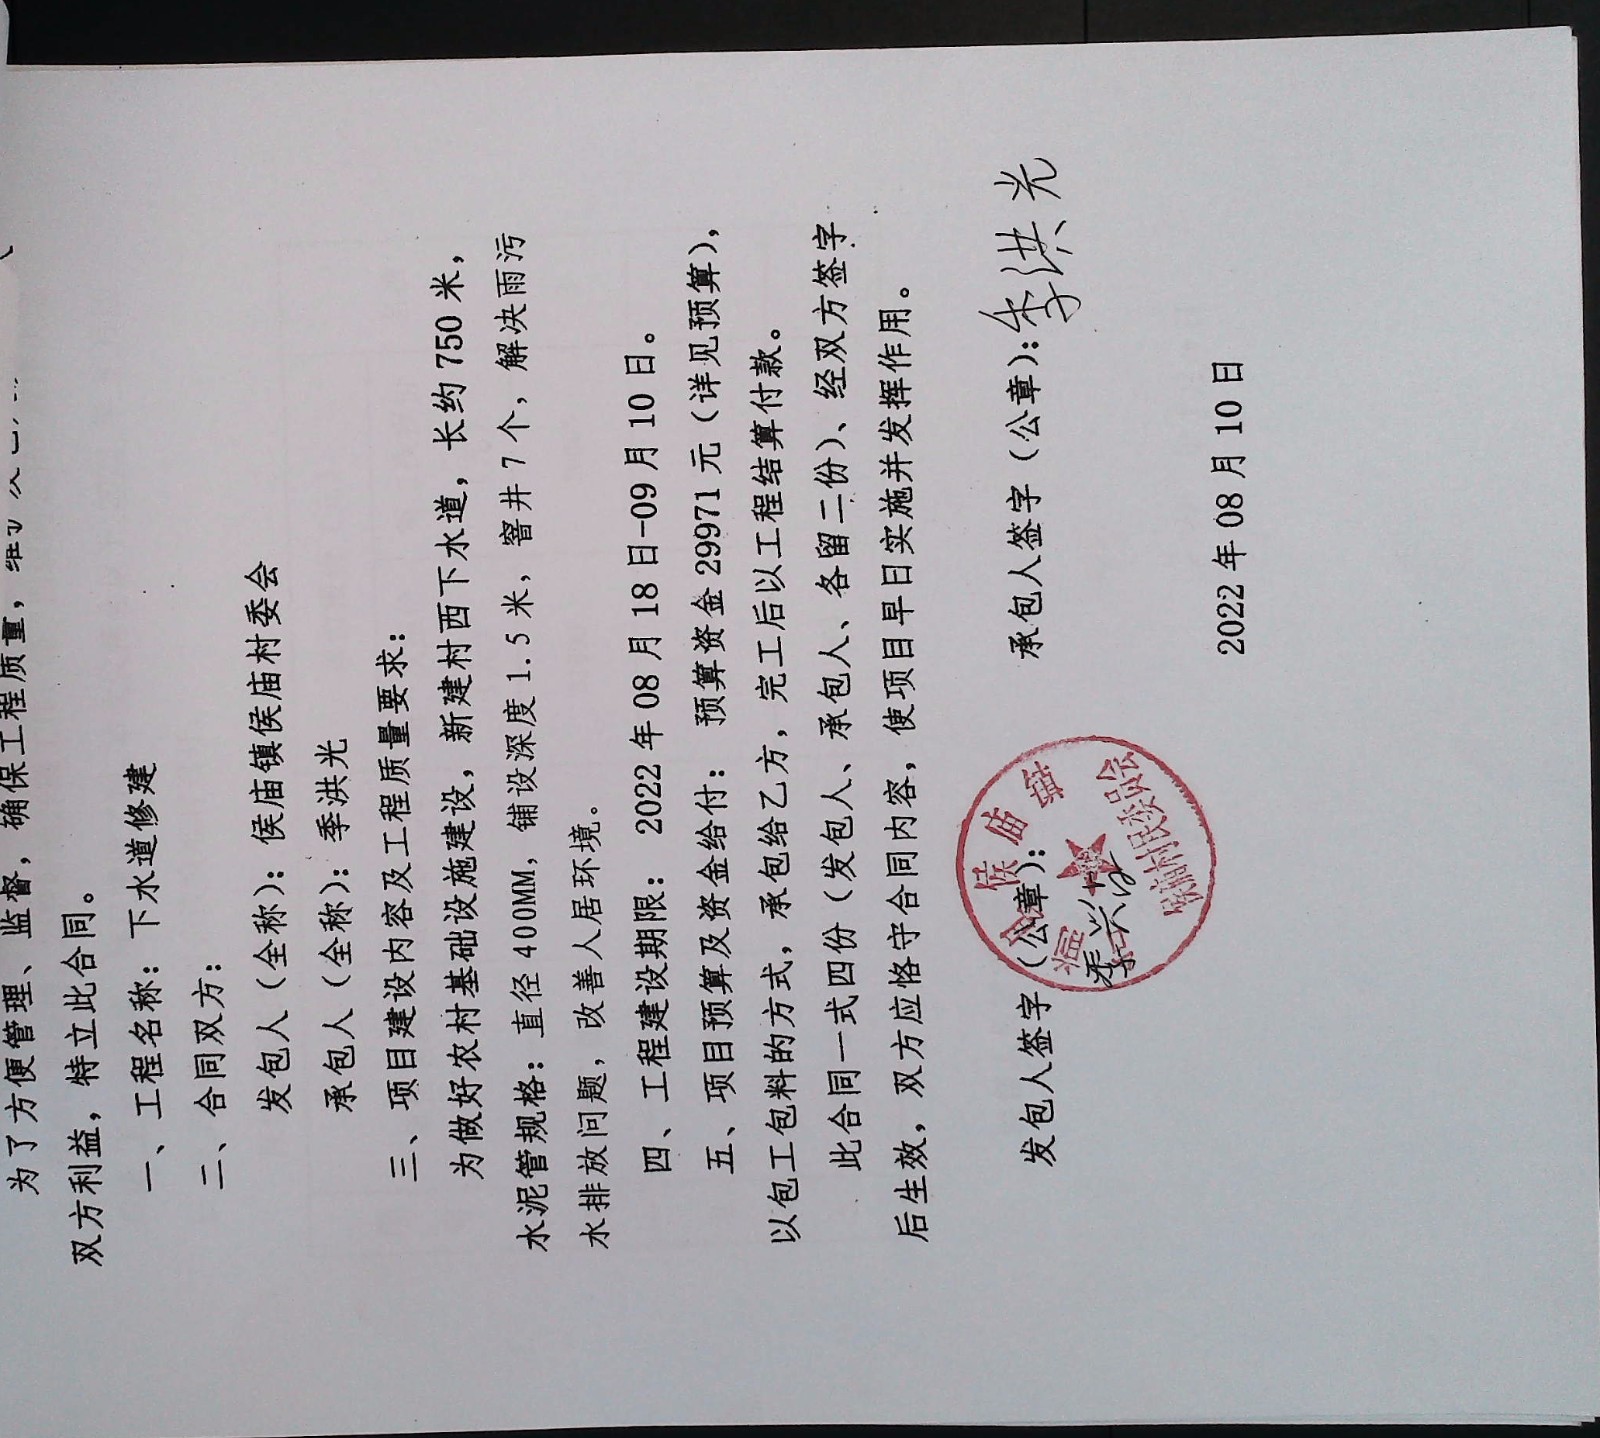 为了方便管理、监督，确保工程质量，维护
双方利益，特立此合同。
一、工程名称：下水道修建
二、合同双方：
发包人（全称）：侯庙镇侯庙村委会
承包人（全称）：季洪光
三、项目建设内容及工程质量要求：
为做好农村基础设施建设，新建村西下水道，长约750米，
水泥管规格：直径400MM，铺设深度1.5米，窨井7个，解决雨污
水排放问题，改善人居环境。
四、工程建设期限：2022年08月18日-09月10日。
五、项目预算及资金给付：预算资金29971元（详见预算），
以包工包料的方式，承包给乙方，完工后以工程结算付款。
此合同一式四份（发包人、承包人、各留二份）、经双方签字
后生效，双方应恪守合同内容，使项目早日实施并发挥作用。
发包人签字（公章）：
侯庙镇
侯庙村民委员会
承包人签字（公章）：季洪光
2022年08月10日